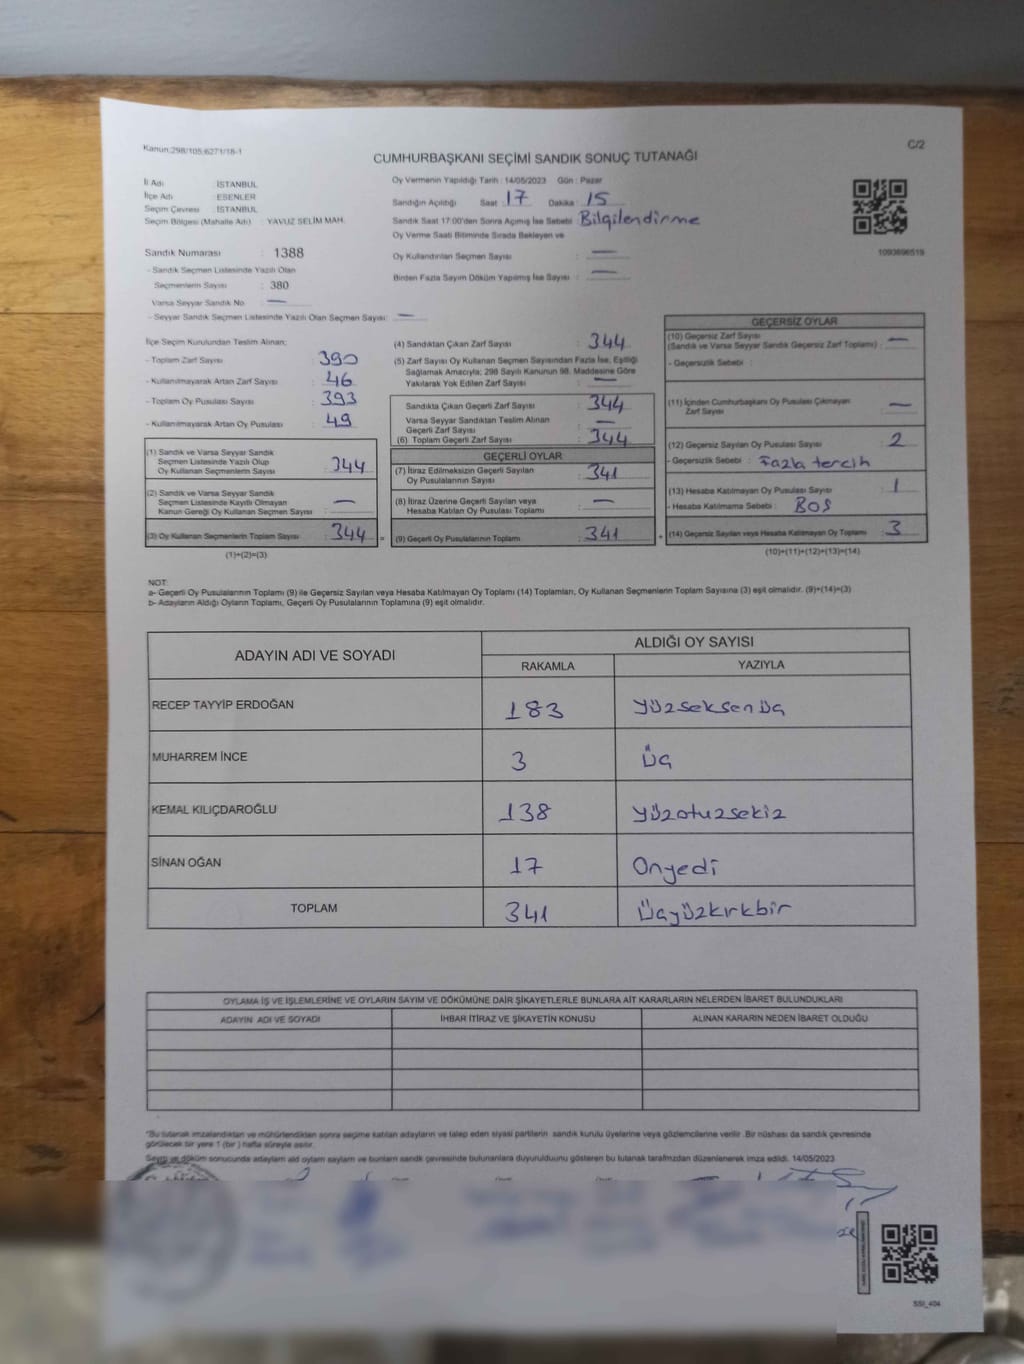 Kanun:298/105;6271/18-1
C/2
CUMHURBAŞKANI SEÇİMİ SANDIK SONUÇ TUTANAĞI
İl Adı : İSTANBUL
İlçe Adı : ESENLER
Seçim Çevresi : İSTANBUL
Seçim Bölgesi (Mahalle Adı) : YAVUZ SELİM MAH.
Oy Vermenin Yapıldığı Tarih : 14/05/2023 Gün : Pazar
Sandığın Açıldığı Saat : 17 Dakika : 15
Sandık Saat 17:00'den Sonra Açılmış İse Sebebi : Bilgilendirme
Oy Verme Saati Bitiminde Sırada Bekleyen ve
Oy Kullandırılan Seçmen Sayısı : —
Birden Fazla Sayım Döküm Yapılmış İse Sayısı : —
1093696519
Sandık Numarası : 1388
- Sandık Seçmen Listesinde Yazılı Olan
Seçmenlerin Sayısı : 380
Varsa Seyyar Sandık No : —
- Seyyar Sandık Seçmen Listesinde Yazılı Olan Seçmen Sayısı: —
İlçe Seçim Kurulundan Teslim Alınan;
- Toplam Zarf Sayısı : 390
- Kullanılmayarak Artan Zarf Sayısı : 46
- Toplam Oy Pusulası Sayısı : 393
- Kullanılmayarak Artan Oy Pusulası : 49
(1) Sandık ve Varsa Seyyar Sandık
Seçmen Listesinde Yazılı Olup
Oy Kullanan Seçmenlerin Sayısı : 344
(2) Sandık ve Varsa Seyyar Sandık
Seçmen Listesinde Kayıtlı Olmayan
Kanun Gereği Oy Kullanan Seçmen Sayısı : —
(3) Oy Kullanan Seçmenlerin Toplam Sayısı : 344
(1)+(2)=(3)
(4) Sandıktan Çıkan Zarf Sayısı : 344
(5) Zarf Sayısı Oy Kullanan Seçmen Sayısından Fazla İse, Eşitliği
Sağlamak Amacıyla; 298 Sayılı Kanunun 98. Maddesine Göre
Yakılarak Yok Edilen Zarf Sayısı : —
Sandıkta Çıkan Geçerli Zarf Sayısı : 344
Varsa Seyyar Sandıktan Teslim Alınan
Geçerli Zarf Sayısı : —
(6) Toplam Geçerli Zarf Sayısı : 344
GEÇERLİ OYLAR
(7) İtiraz Edilmeksizin Geçerli Sayılan
Oy Pusulalarının Sayısı : 341
(8) İtiraz Üzerine Geçerli Sayılan veya
Hesaba Katılan Oy Pusulası Toplamı : —
(9) Geçerli Oy Pusulalarının Toplamı : 341
GEÇERSİZ OYLAR
(10) Geçersiz Zarf Sayısı
(Sandık ve Varsa Seyyar Sandık Geçersiz Zarf Toplamı) : —
- Geçersizlik Sebebi :
(11) İçinden Cumhurbaşkanı Oy Pusulası Çıkmayan
Zarf Sayısı : —
(12) Geçersiz Sayılan Oy Pusulası Sayısı : 2
- Geçersizlik Sebebi : Fazla tercih
(13) Hesaba Katılmayan Oy Pusulası Sayısı : 1
- Hesaba Katılmama Sebebi : BOŞ
(14) Geçersiz Sayılan veya Hesaba Katılmayan Oy Toplamı : 3
(10)+(11)+(12)+(13)=(14)
NOT:
a- Geçerli Oy Pusulalarının Toplamı (9) ile Geçersiz Sayılan veya Hesaba Katılmayan Oy Toplamı (14) Toplamları, Oy Kullanan Seçmenlerin Toplam Sayısına (3) eşit olmalıdır. (9)+(14)=(3)
b- Adayların Aldığı Oyların Toplamı, Geçerli Oy Pusulalarının Toplamına (9) eşit olmalıdır.
ADAYIN ADI VE SOYADI
ALDIĞI OY SAYISI
RAKAMLA YAZIYLA
RECEP TAYYİP ERDOĞAN 183 yüzseksenüç
MUHARREM İNCE 3 üç
KEMAL KILIÇDAROĞLU 138 yüzotuzsekiz
SİNAN OĞAN 17 Onyedi
TOPLAM 341 üçyüzkırkbir
OYLAMA İŞ VE İŞLEMLERİNE VE OYLARIN SAYIM VE DÖKÜMÜNE DAİR ŞİKAYETLERLE BUNLARA AİT KARARLARIN NELERDEN İBARET BULUNDUKLARI
ADAYIN ADI VE SOYADI İHBAR İTİRAZ VE ŞİKAYETİN KONUSU ALINAN KARARIN NEDEN İBARET OLDUĞU
*Bu tutanak imzalandıktan ve mühürlendikten sonra seçime katılan adayların ve talep eden siyasi partilerin sandık kurulu üyelerine veya gözlemcilerine verilir. Bir nüshası da sandık çevresinde
görülecek bir yere 1 (bir) hafta süreyle asılır.
Sayım ve döküm sonucunda adayların aldığı oyların sayılarını ve bunların sandık çevresinde bulunanlara duyurulduğunu gösteren bu tutanak tarafımızdan düzenlenerek imza edildi. 14/05/2023
SSI_404